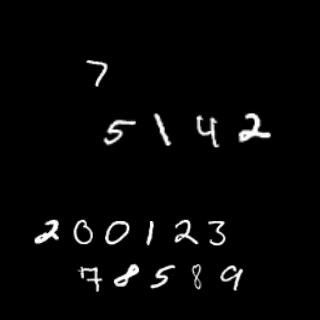 7
5142
200123
78589